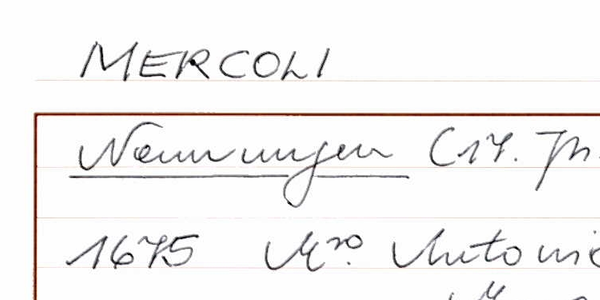 MERCOLI
Nennungen (17. Jh.
1675 Mro. Antonio